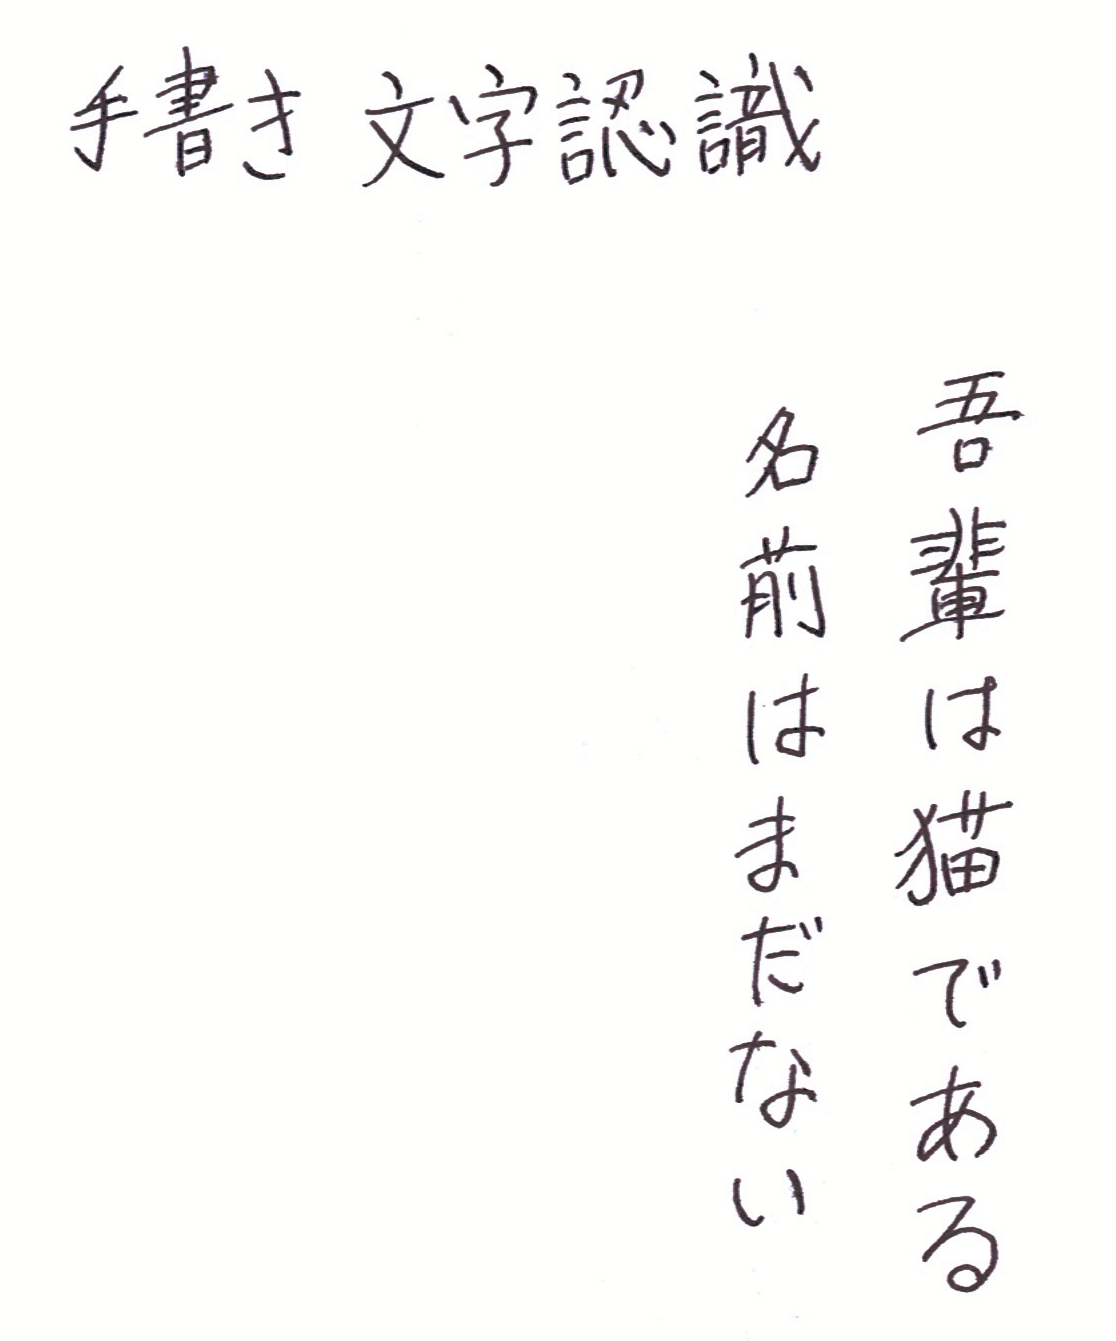 手書き文字認識
吾輩は猫である
名前はまだない